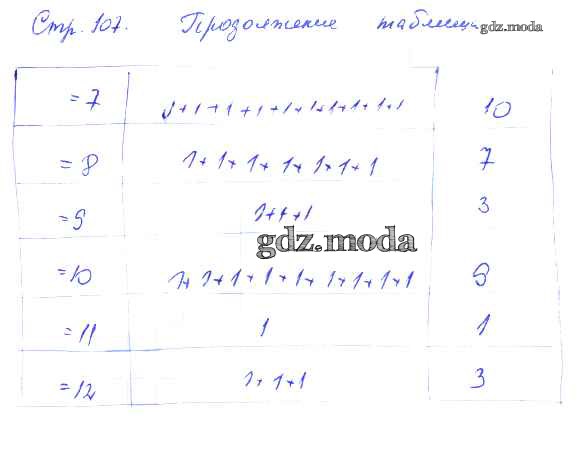 Стр. 107. Продолжение таблицы gdz.moda
=7 1+1+1+1+1+1+1+1+1+1 10
=8 1+1+1+1+1+1+1 7
=9 1+1+1 3
gdz.moda
=10 1+1+1+1+1+1+1+1+1 9
=11 1 1
=12 1+1+1 3